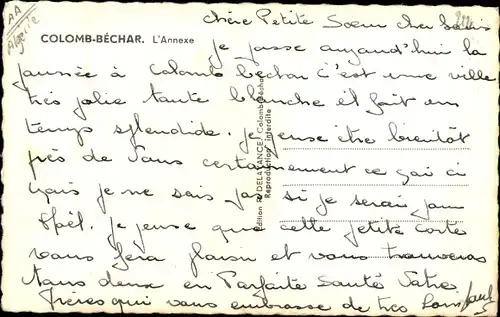 AA
Algérie
Chère Petite Soeur cher
COLOMB-BÉCHAR. L'Annexe
je passe aujourd'hui la
journée à Colomb bechar c'est une ville
très jolie toute blanche il fait un
temps splendide. je pense être bientôt
près de vous certainement ce qui ci
mais je ne sais pas si je serai pour
Noël. je pense que cette petite carte
vous fera plaisir et vous trouveras
tous deux en Parfaite Santé Votre
frères qui vous embrasse de très loin Paul
Edition R. DELATANCE, Colomb-Béchar
Reproduction interdite